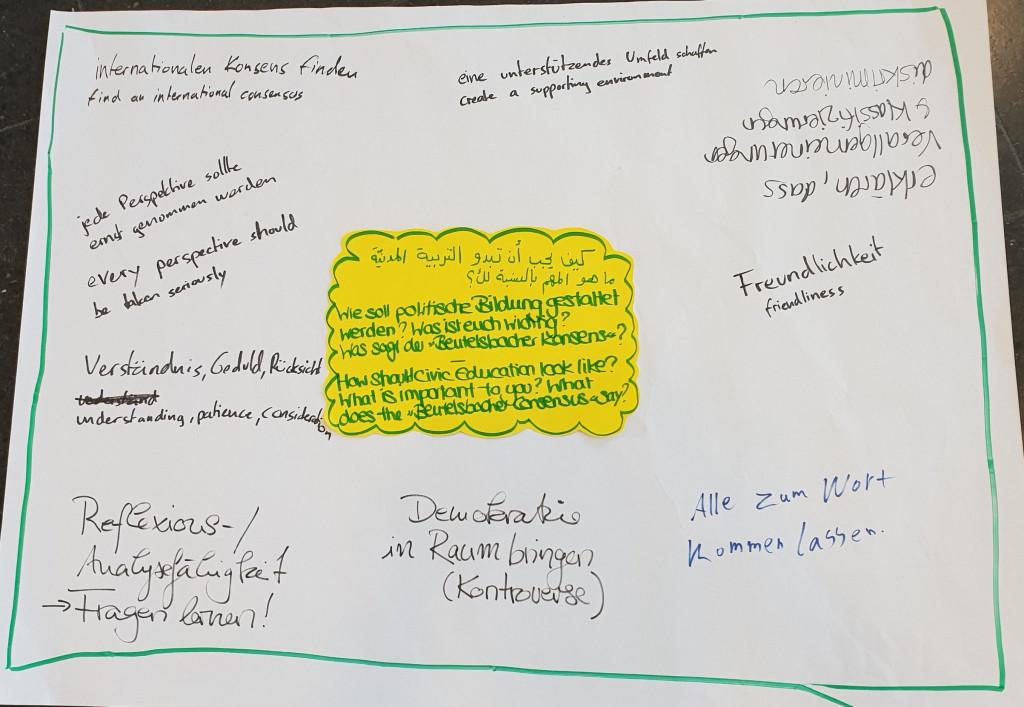 internationalen Konsens finden
find an international consensus
eine unterstützendes Umfeld schaffen
create a supporting environment
erklären, dass
Verallgemeinerungen
& Klassifizierungen
diskriminieren
jede Perspektive sollte
ernst genommen werden
every perspective should
be taken seriously
Freundlichkeit
friendliness
كيف يجب أن تبدو التربية المدنية
ما هو المهم بالنسبة لك؟
Wie soll politische Bildung gestaltet
werden? Was ist euch wichtig?
Was sagt der "Beutelsbacher Konsens"?
How should Civic Education look like?
What is important to you? What
does the "Beutelsbacher Consensus" say?
Verständnis, Geduld, Rücksicht
understand
understanding, patience, consideration
Reflexions-/
Analysefähigkeit
→ Fragen lernen!
Demokratie
in Raum bringen
(Kontroverse)
Alle zum Wort
kommen lassen.